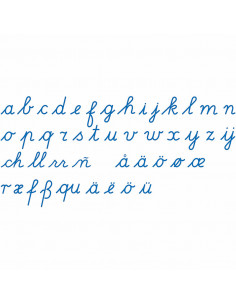 a b c d e f g h i j k l m n
o p q r s t u v w x y z ij
ch ll rr ñ å ä ö ø œ
r æ f ß qu ä ë ö ü